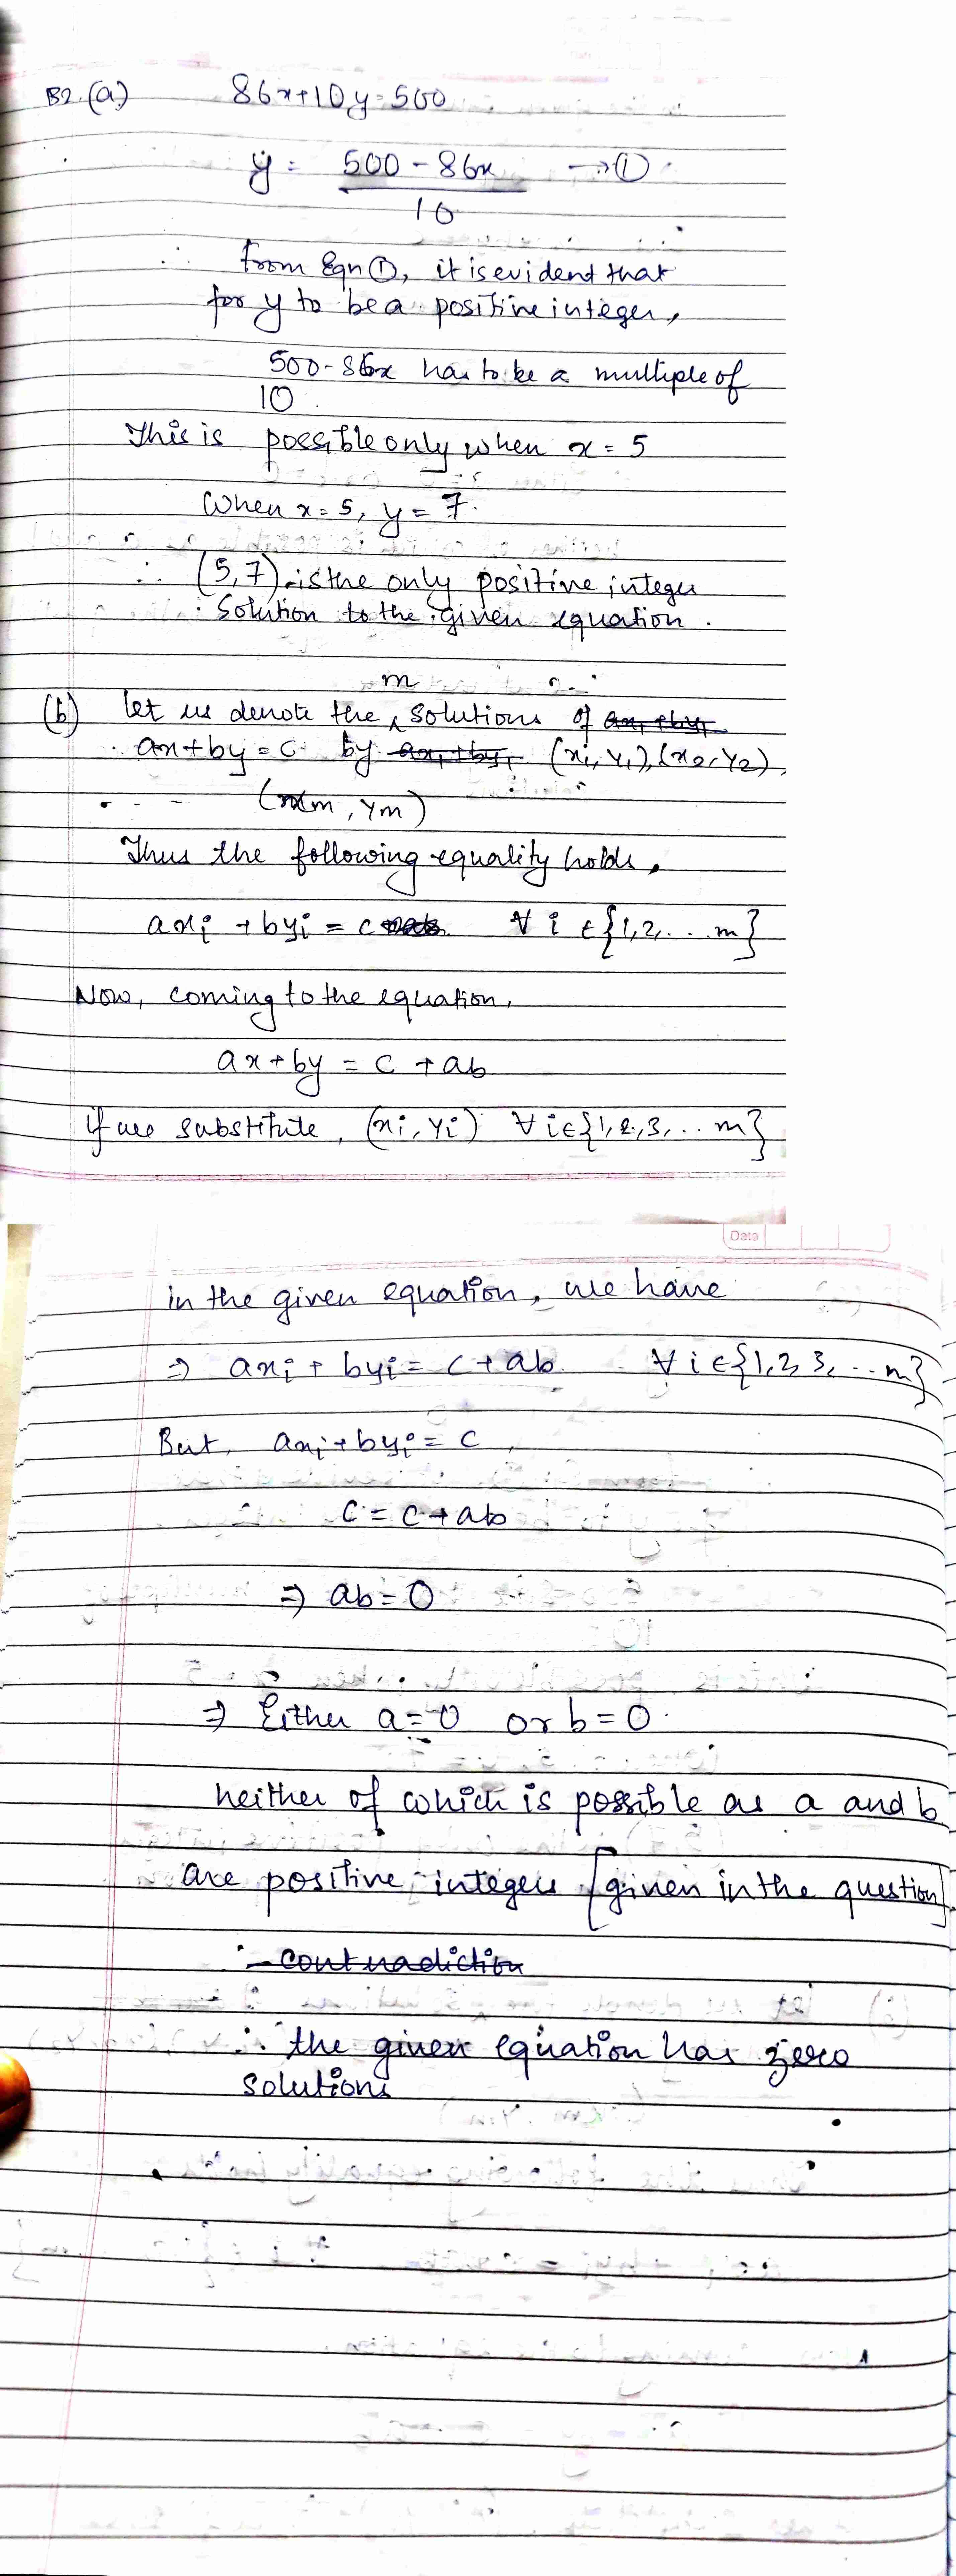 B2. (a) 86x+10y=500
y = 500 - 86x / 10 → ①
from Eqn ①, it is evident that
for y to be a positive integer,
500-86x has to be a multiple of
10.
This is possible only when x = 5
When x = 5, y = 7.
∴ (5,7) is the only positive integer
solution to the given equation.
(b) let us denote the m solutions of ax1+by1
ax+by=c by ax1+by1 (x1,y1),(x2,y2),
.... (xm, ym)
Thus the following equality holds,
axi + byi = c ∀ i ∈ {1,2,...m}
Now, coming to the equation,
ax+by = c + ab
if we substitute, (xi, yi) ∀ i∈{1,2,3,..m}
Date
in the given equation, we have
⇒ axi + byi = c+ab. ∀ i ∈{1,2,3,...m}
But, axi+byi = c,
c = c+ab
⇒ ab=0
⇒ Either a=0 or b=0.
neither of which is possible as a and b
are positive integers [given in the question].
∴ contradiction
∴ the given equation has zero
solutions